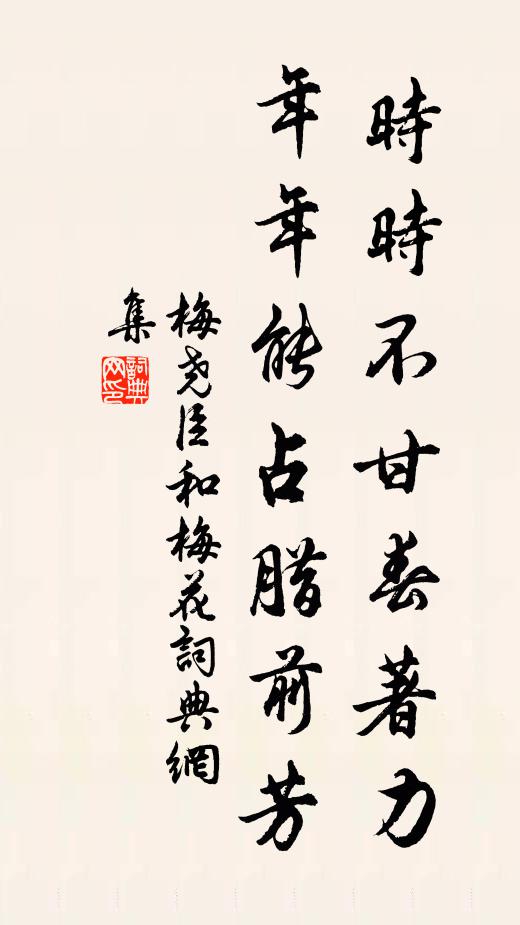 時時不甘春著力
年年能占腊前芳
梅尧臣和梅花詞典網
集
詞典
网印